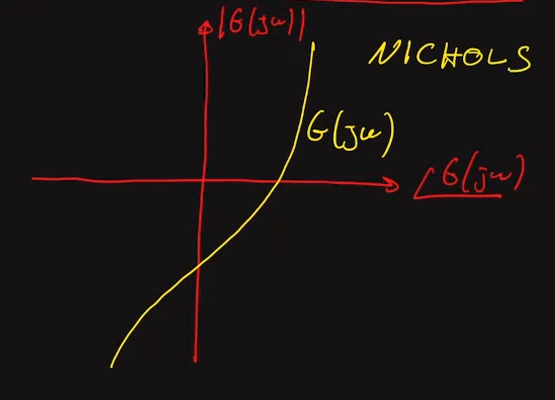 |G(jω)|
NICHOLS
G(jω)
∠G(jω)